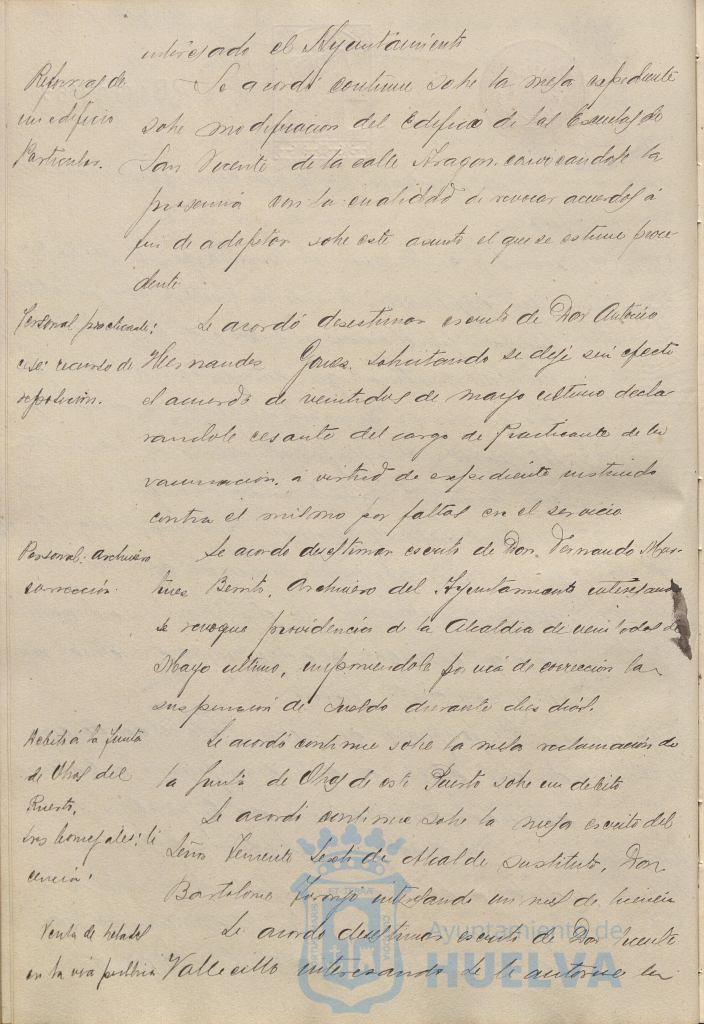 interesado el Ayuntamiento
Reformas de
un edificio
Particular.
Se acordó continue sobre la mesa expediente
sobre modificacion del edificio de las Escuelas de
San Vicente de la calle Aragon, convocandose la
proxima con la cualidad de revocar acuerdos á
fin de adoptar sobre este asunto el que se estime proce
dente
Personal practicante:
recurso de
reposicion.
Se acordó desestimar escrito de Don Antonio
Hernandez Gomez, solicitando se deje sin efecto
el acuerdo de veintidos de mayo ultimo decla
randole cesante del cargo de Practicante de la
vacunacion, á virtud de expediente instruido
contra el mismo por faltas en el servicio
Personal: archivero
correccion.
Se acordo desestimar escrito de Don Fernando Mar-
tinez Berrito, Archivero del Ayuntamiento interesando
se revoque providencia de la Alcaldia de veintidos de
Mayo ultimo, imponiendole por via de correccion la
suspension de sueldo durante diez dias.
Debito á la Junta
de Obras del
Puerto,
Se acordó continue sobre la mesa reclamación de
la Junta de Obras de este Puerto sobre un debito
Sres. Concejales: li
cencia:
Se acordó continue sobre la mesa escrito del
Señor Teniente Sexto de Alcalde sustituto, Don
Bartolome Toronjo interesando un mes de licencia
Venta de helados
en la via publica
Se acordó desestimar escrito de Don Vicente
Vallecillo interesando se le autorice la
Ayuntamiento de
HUELVA